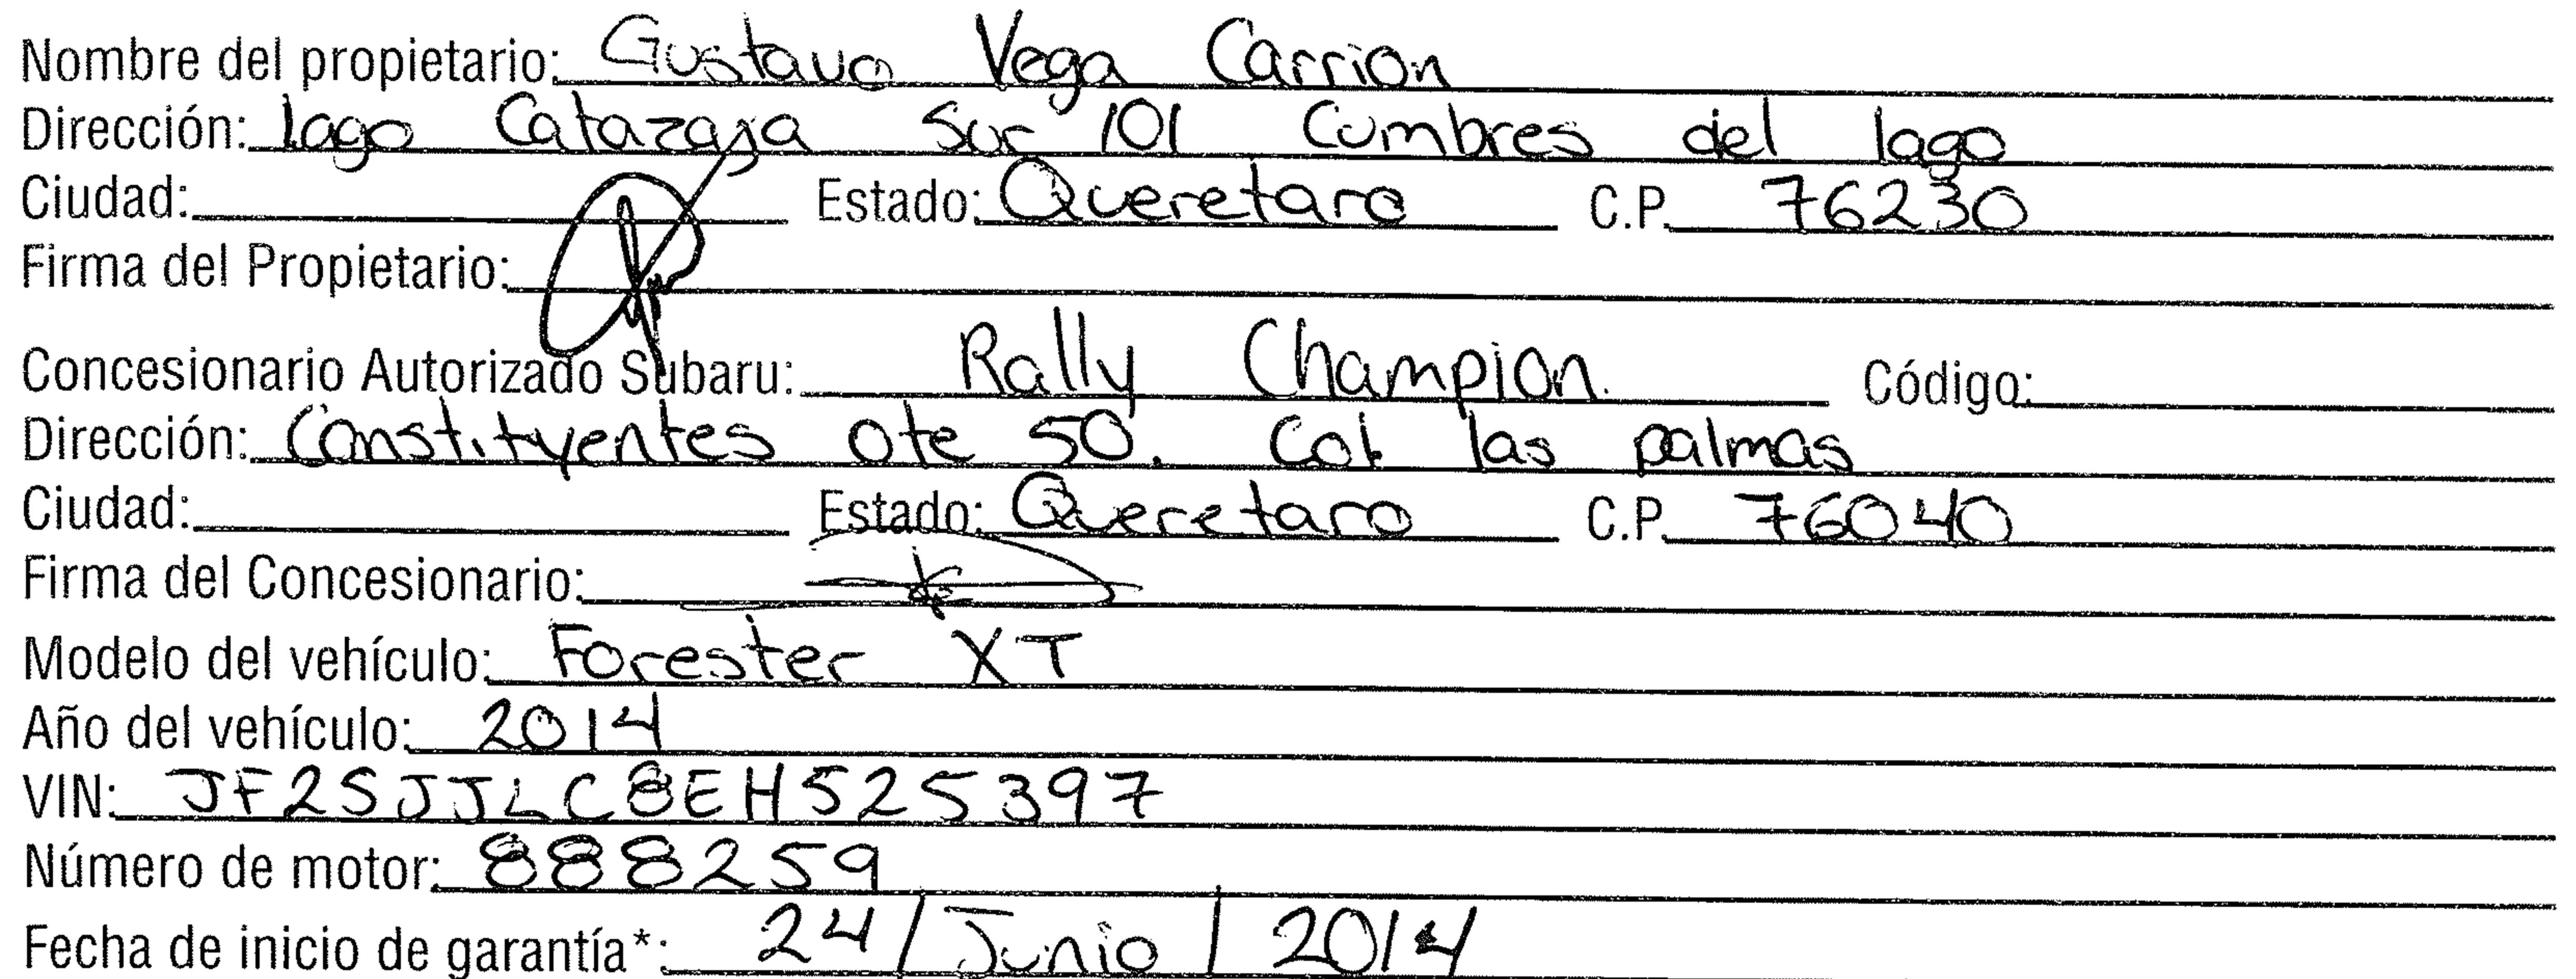 Nombre del propietario: Gustavo Vega Carrion
Dirección: lago Catazaja Sur 101 Cumbres del lago
Ciudad: Estado: Queretaro C.P. 76230
Firma del Propietario:
Concesionario Autorizado Subaru: Rally Champion. Código:
Dirección: Constituyentes ote 50. Col. las palmas
Ciudad: Estado: Queretaro C.P. 76040
Firma del Concesionario:
Modelo del vehículo: Forester XT
Año del vehículo: 2014
VIN: JF2SJJLC8EH525397
Número de motor: 888259
Fecha de inicio de garantía*: 24/Junio/2014